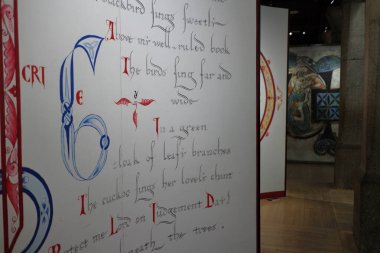 blackbird sings sweetly
Above my well-ruled book
The birds sing far and
wide
CRI
E
In a green
cloak of leafy branches
The cuckoo sings her lovely chant
Protect me Lord on Judgement Day!
beneath the trees.